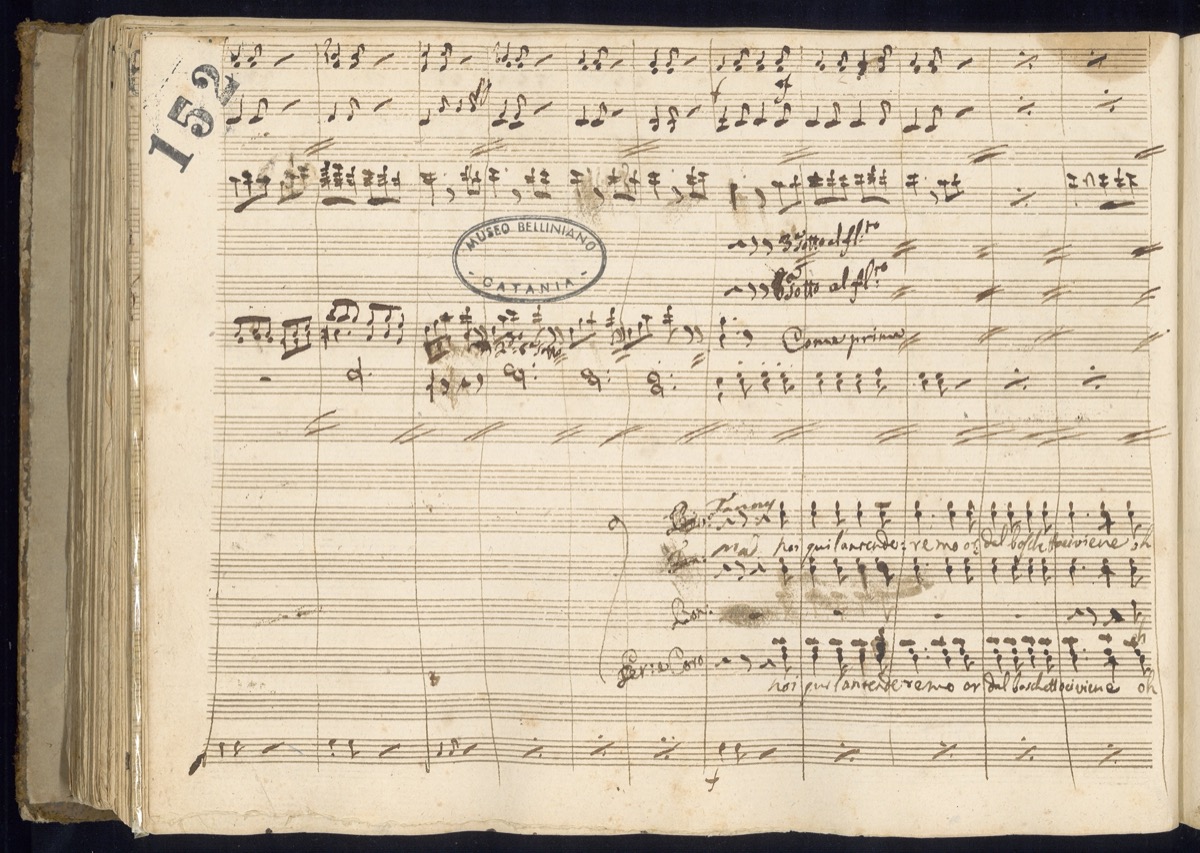 152
MUSEO BELLINIANO
CATANIA
3ª sotto al fl.to
6ª sotto al fl.to
Come prima
Fanny
noi qui l'attenderemo or dal boschetto ci viene oh
Bon:
eh
e Coro
noi qui l'attenderemo or dal boschetto ci viene oh